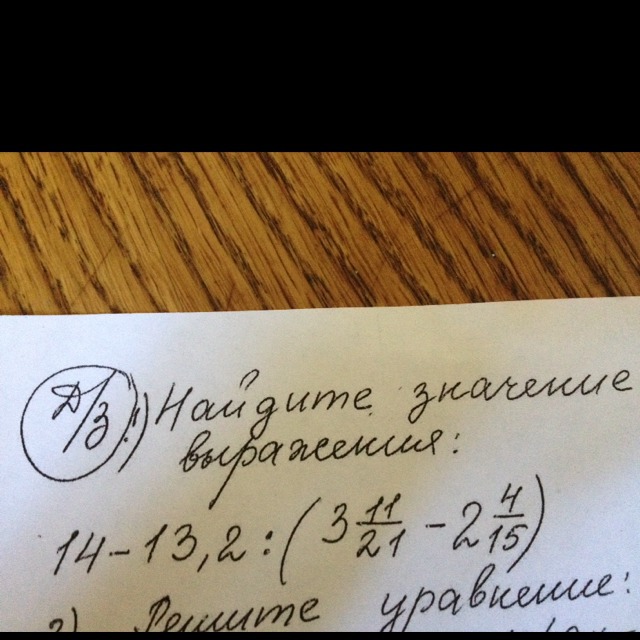 Д/З 1) Найдите значение
выражения:
14 - 13,2 : ( 3 11/21 - 2 4/15 )
2) Решите уравнение: